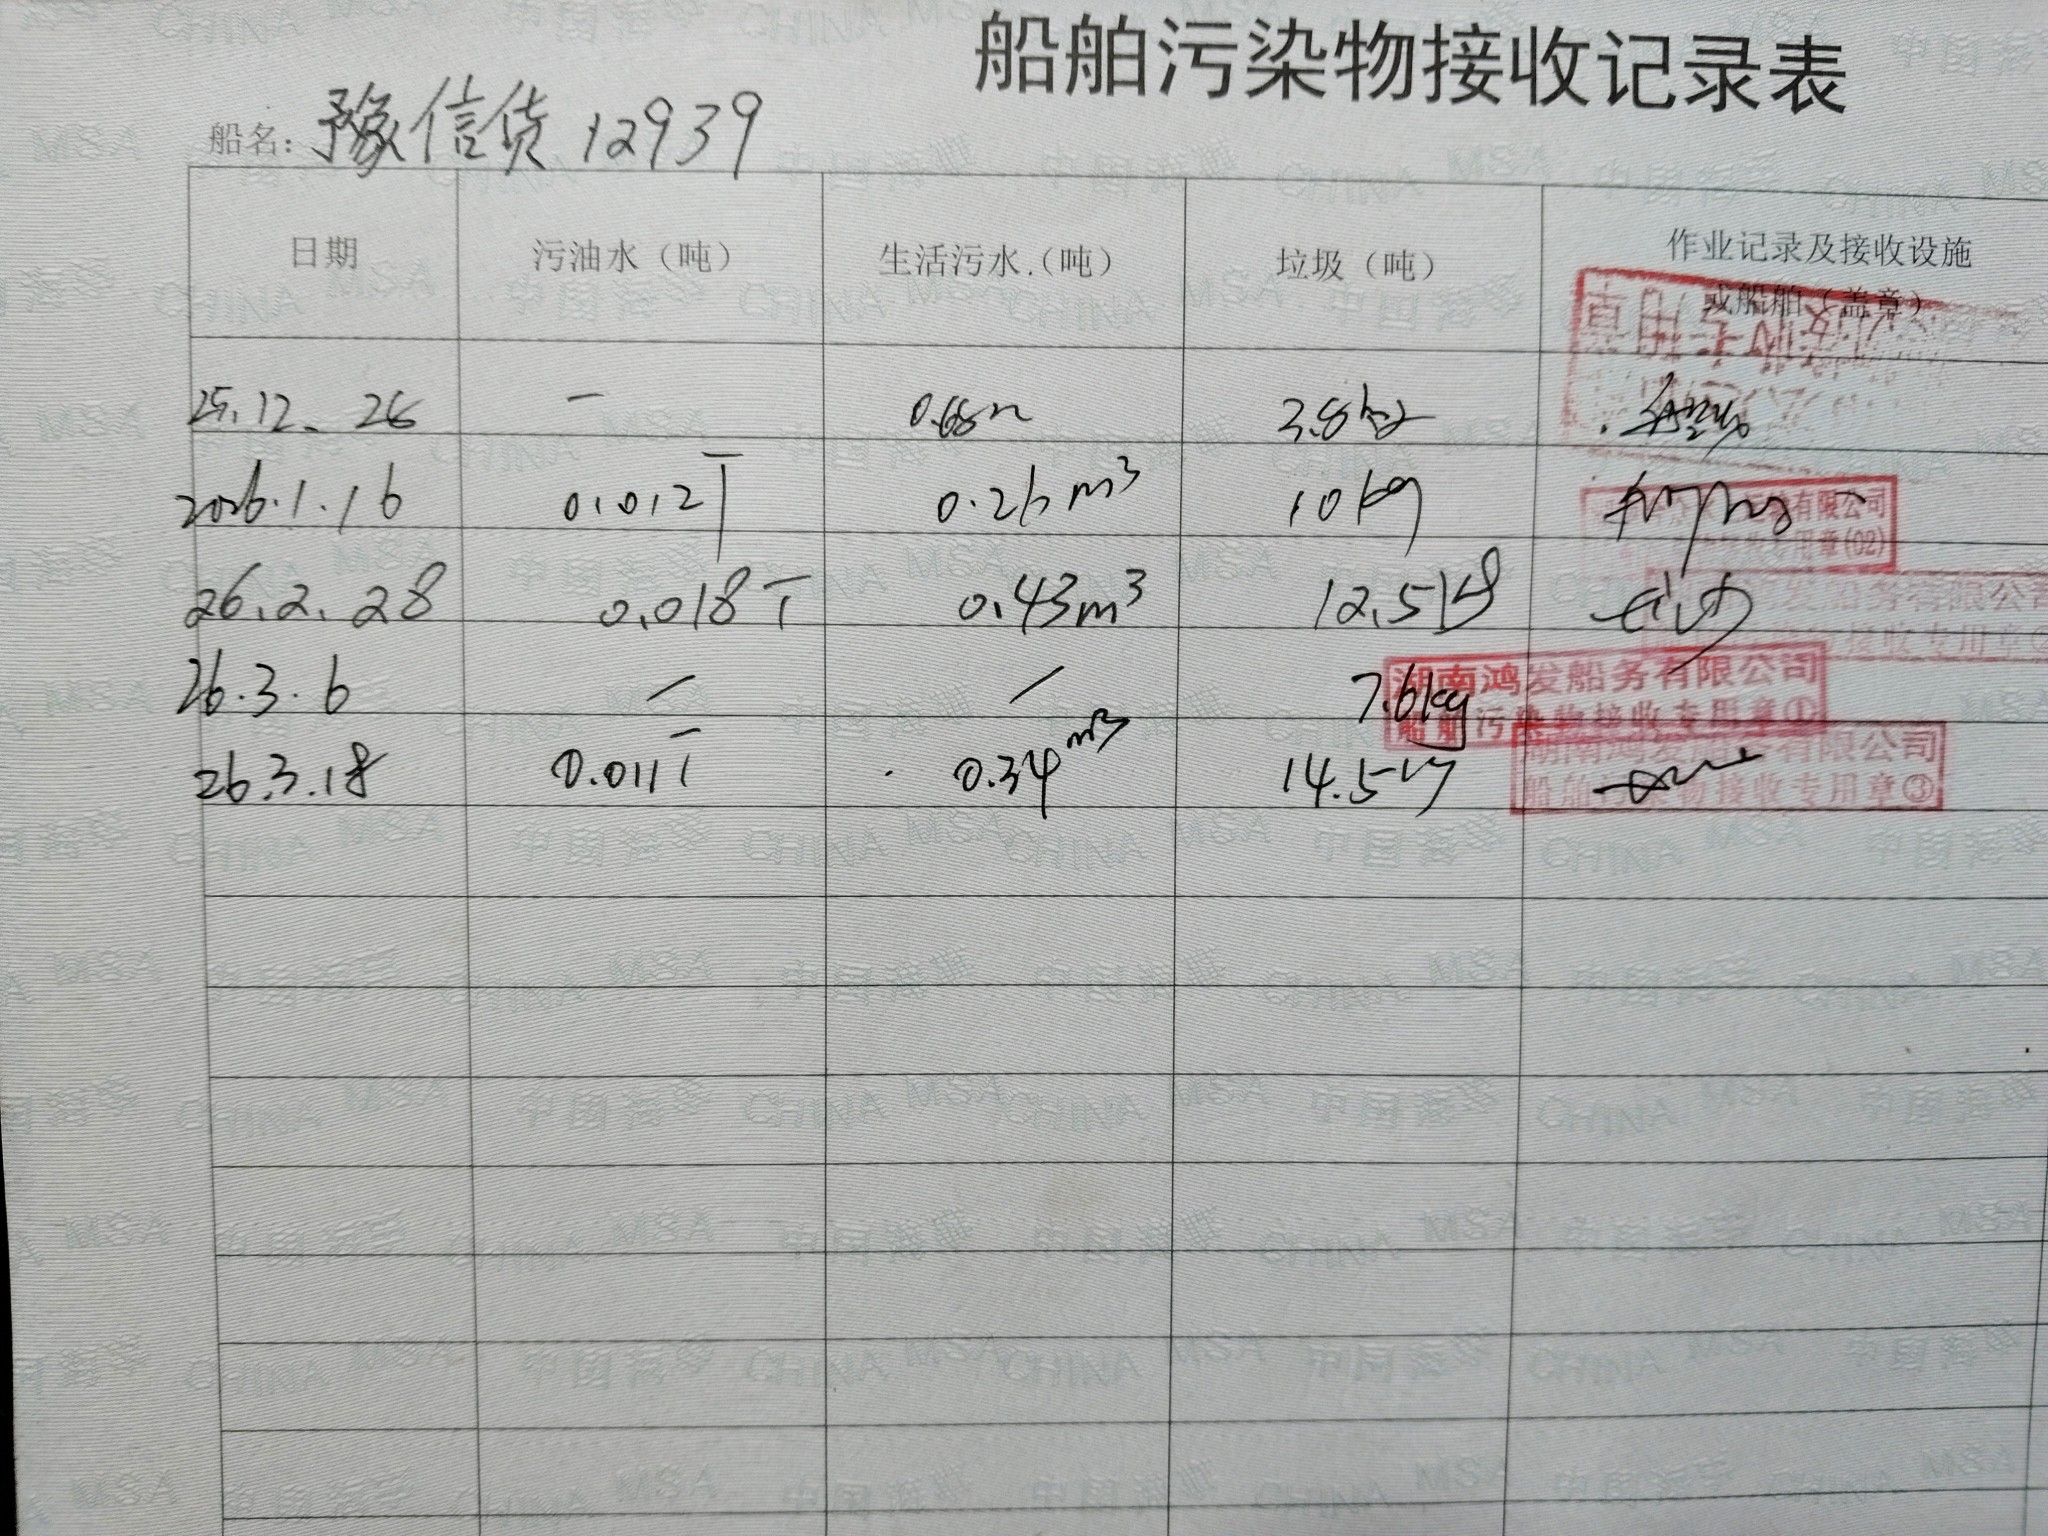 船舶污染物接收记录表
船名: 豫信货12939
日期 污油水（吨） 生活污水（吨） 垃圾（吨） 作业记录及接收设施
或船舶（盖章）
25.12.26 — 0.68m 3.8kg
2026.1.16 0.012T 0.26m³ 10kg 有限公司
用章(02)
26.2.28 0.018T 0.43m³ 12.5kg 发船务有限公司
接收专用章
26.3.6 / / 7.6kg 湖南鸿发船务有限公司
船舶污染物接收专用章①
26.3.18 0.011T 0.34m³ 14.5kg 湖南鸿发船务有限公司
船舶污染物接收专用章③